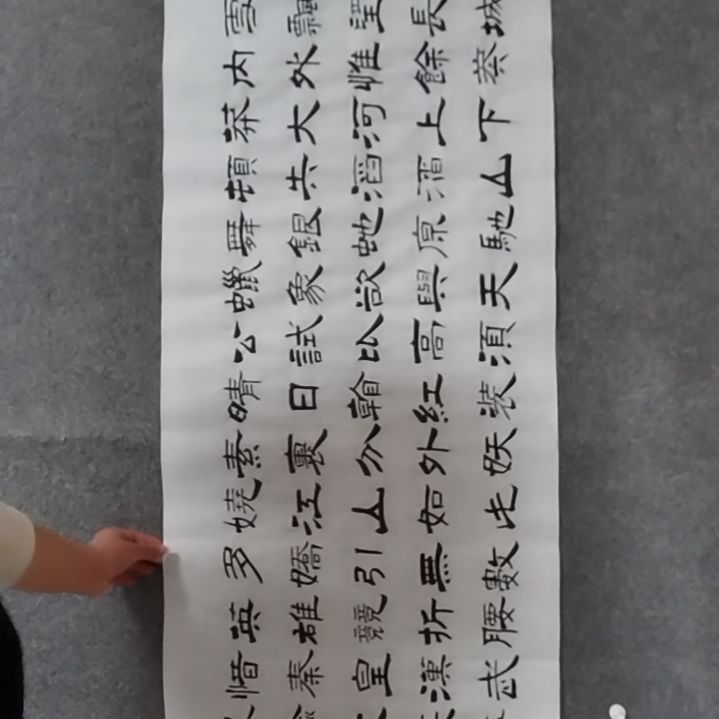 雪飄望長城
內外惟餘莽
莽大河上下
頓失滔滔山
舞銀蛇原馳
蠟象欲與天
公試比高須
晴日看紅裝
素裹分外妖
嬈江山如此
多嬌引無數
英雄競折腰
惜秦皇漢武